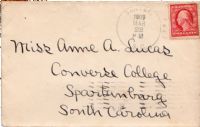 1909
MAR
Miss Anne A. Lucas
Converse College
Spartanburg
South Carolina